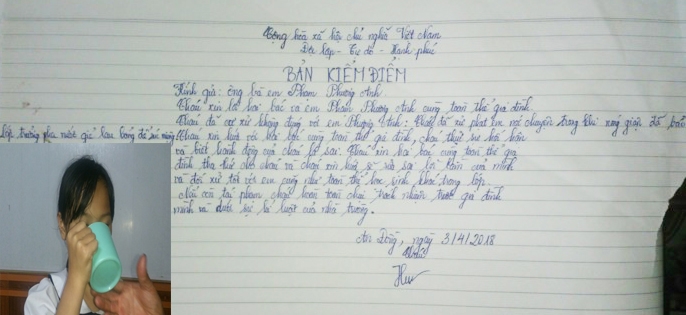 Cộng hòa xã hội chủ nghĩa Việt Nam
Độc lập - Tự do - Hạnh phúc
BẢN KIỂM ĐIỂM
Kính gửi: ông bà em Phạm Phương Anh
Cháu xin lỗi hai bác và em Phạm Phương Anh cùng toàn thể gia đình.
Cháu đã cư xử không đúng với em Phương Anh: Cháu đã xử phạt em nói chuyện trong khi nóng giận đã bảo
lớp trưởng pha nước giẻ lau bảng để súc miệng. Cháu xin hứa với hai bác cùng toàn thể gia đình, cháu thật sự hối hận
và biết hành động của cháu là sai. Cháu xin hai bác cùng toàn thể gia
đình tha thứ cho cháu và cháu xin hứa sẽ sửa sai lỗi lầm của mình
và đối xử tốt với em cũng như toàn thể học sinh khác trong lớp.
Nếu còn tái phạm cháu hoàn toàn chịu trách nhiệm trước gia đình
mình và dưới sự kỉ luật của nhà trường.
An Đồng, ngày 3/4/2018
Cháu